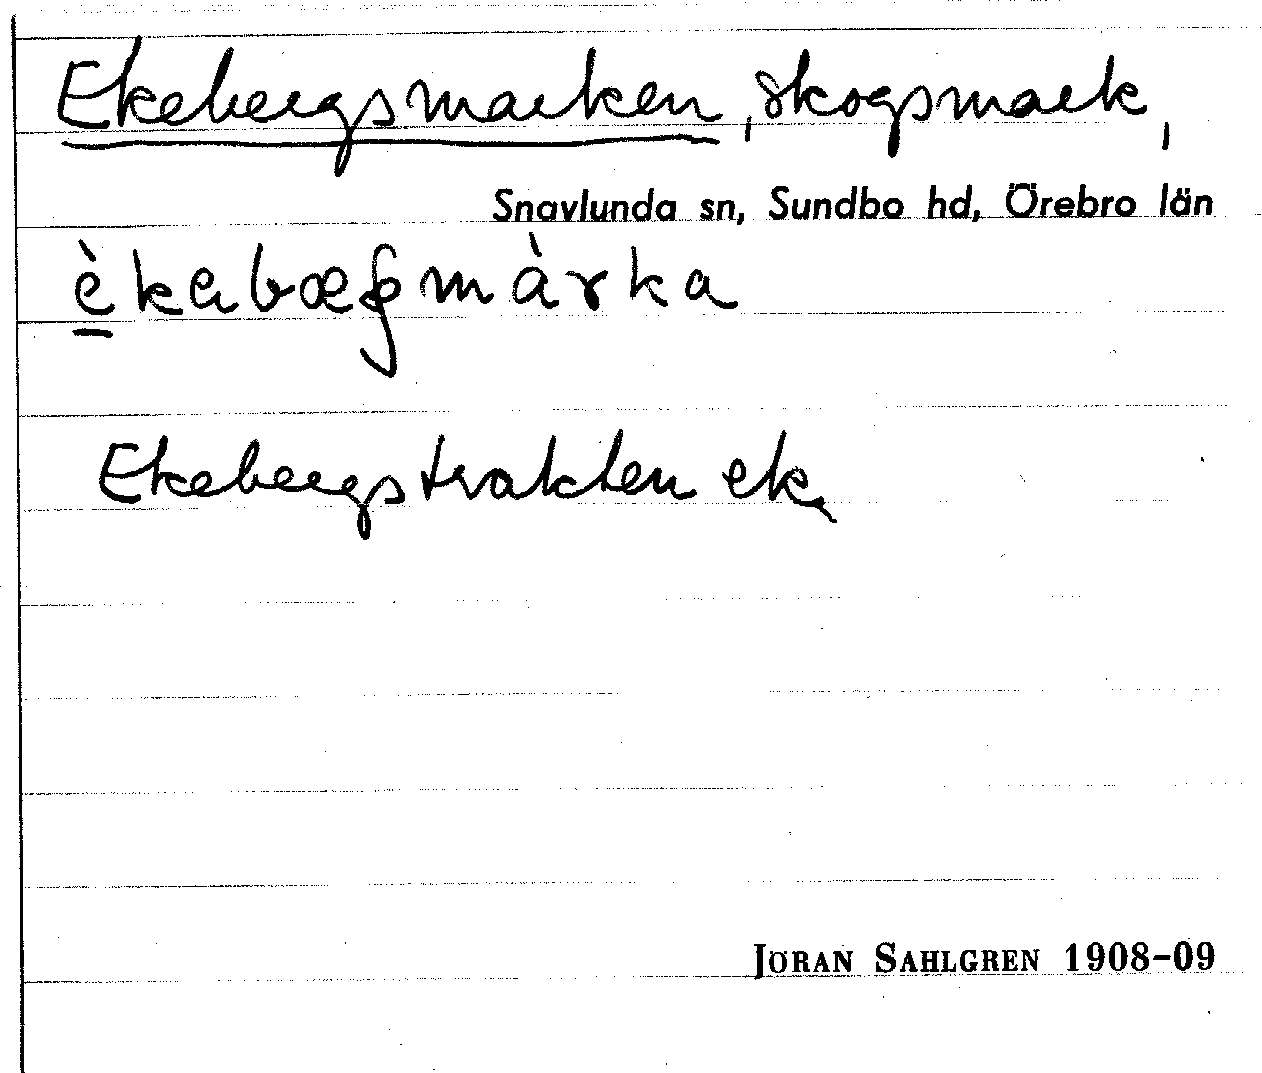 Ekebergsmarken, skogsmark,
Snavlunda sn, Sundbo hd, Örebro län
Ekebergstrakten ek.
JÖRAN SAHLGREN 1908-09